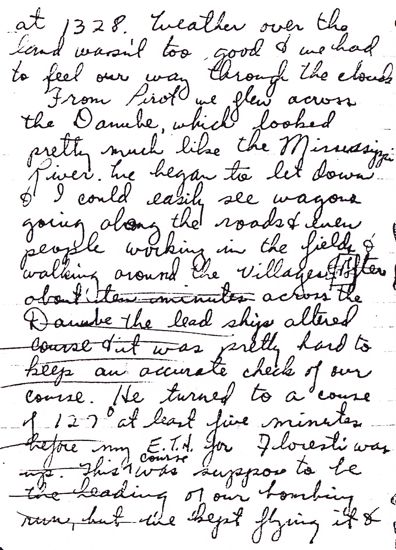 at 1328. Weather over the
land wasn't too good & we had
to feel our way through the clouds
From Pirot we flew across
the Danube, which looked
pretty much like the Mississippi
River. We began to let down
& I could easily see wagons
going along the roads & even
people working in the fields &
walking around the villages. After
about ten minutes across the
Danube the lead ship altered
course & it was pretty hard to
keep an accurate check of our
course. He turned to a course
of 127° at least five minutes
before my E.T.A. for Floresti was
up. This course was suppose to be
the heading of our bombing
run, but we kept flying it &